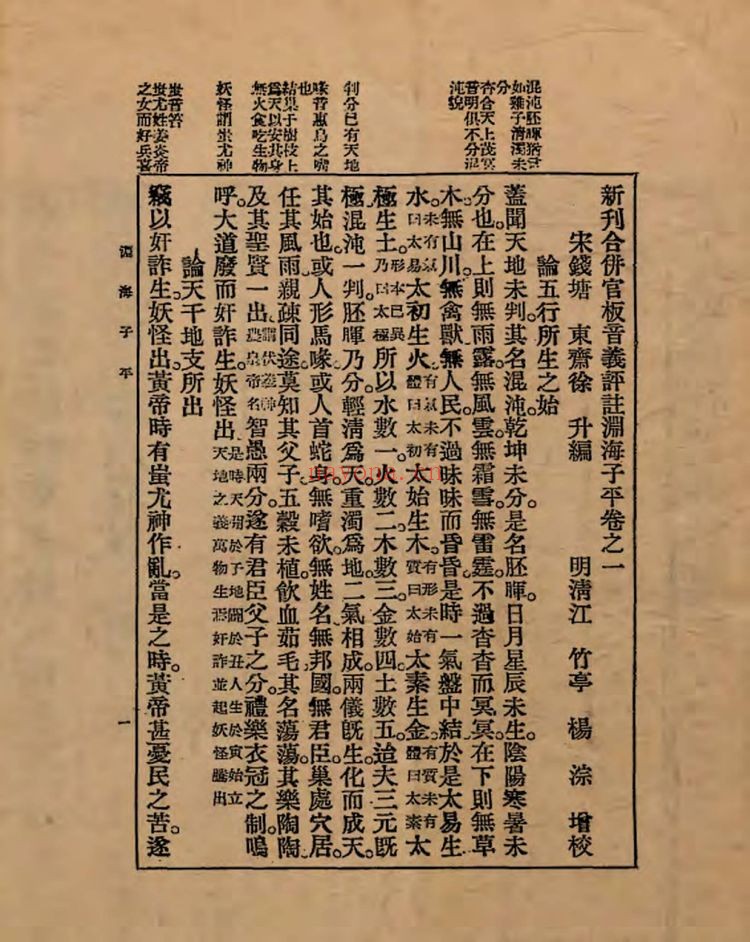 混沌胚暉猶言
如雞子清濁未
分
杳合天上茂冥
昏明俱不分混
沌貌
判分已有天地
喙音惠鳥之嘴
也
結巢于樹枝上
爲天以安其身
無火食吃生物
妖怪謂蚩尤神
蚩音答
蚩尤姓姜炎帝
之女而好兵喜
新刊合併官板音義評註淵海子平卷之一
宋錢塘 東齋徐 升編 明淸江 竹亭 楊 淙 增校
論五行所生之始
蓋聞天地未判。其名混沌。乾坤未分。是名胚暉。日月星辰未生。陰陽寒暑未
分也。在上則無雨露。無風雲。無霜雪。無雷霆。不過杳杳而冥冥。在下則無草
木。無山川。無禽獸。無人民。不過昧昧而昏昏。是時一氣盤中結。於是太易生
水。未有氣曰太易太初生火。有氣未有體曰太初太始生木。有形未有質曰太始太素生金。有質未有體曰太素太
極生土。形本已具乃曰太極所以水數一。火數二。木數三。金數四。土數五。迨夫三元旣
極。混沌一判。胚暉乃分。輕清爲天。重濁爲地。二氣相成。兩儀旣生。化而成天。
其始也。或人形馬喙。或人首蛇身。無嗜欲。無姓名。無邦國。無君臣。巢處穴居。
任其風雨。親疎同途。莫知其父子。五穀未植。飲血茹毛。其名蕩蕩。其樂陶陶。
及其聖賢一出。謂伏羲神農皇帝名智愚兩分。遂有君臣父子之分。禮樂衣冠之制。嗚
呼。大道廢而奸詐生。妖怪出。是時天開於子地闢於丑人生於寅始立天地之義萬物生焉奸詐並起妖怪騰出
論天干地支所出
竊以奸詐生。妖怪出。黃帝時有蚩尤神作亂。當是之時。黃帝甚憂民之苦。遂
淵海子平
一